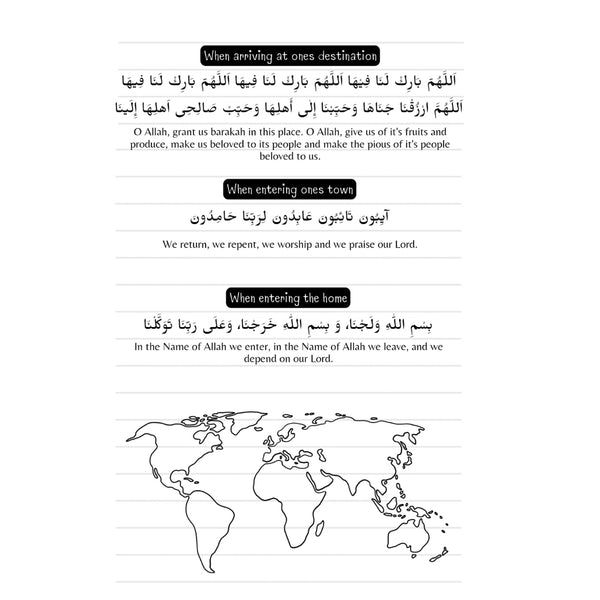 When arriving at ones destination
اَللَّهُمَ بَارِكْ لَنَا فِيْهَا اَللَّهُمَ بَارِكْ لَنَا فِيهَا اَللَّهُمَ بَارِكْ لَنَا فِيهَا
اَللَّهُمَّ ارْزُقْنَا جَنَاهَا وَحَبِّبْنَا إِلَى أَهلِهَا وَحَبِّبْ صَالِحِى أَهلِهَا إِلَينَا
O Allah, grant us barakah in this place. O Allah, give us of it's fruits and
produce, make us beloved to its people and make the pious of it's people
beloved to us.
When entering ones town
آيِبُون تَائِبُون عَابِدُون لِرَبِّنَا حَامِدُون
We return, we repent, we worship and we praise our Lord.
When entering the home
بِسْمِ اللهِ وَلَجْنَا، وَ بِسْمِ اللهِ خَرَجْنَا، وَعَلَى رَبِّنَا تَوَكَّلْنَا
In the Name of Allah we enter, in the Name of Allah we leave, and we
depend on our Lord.